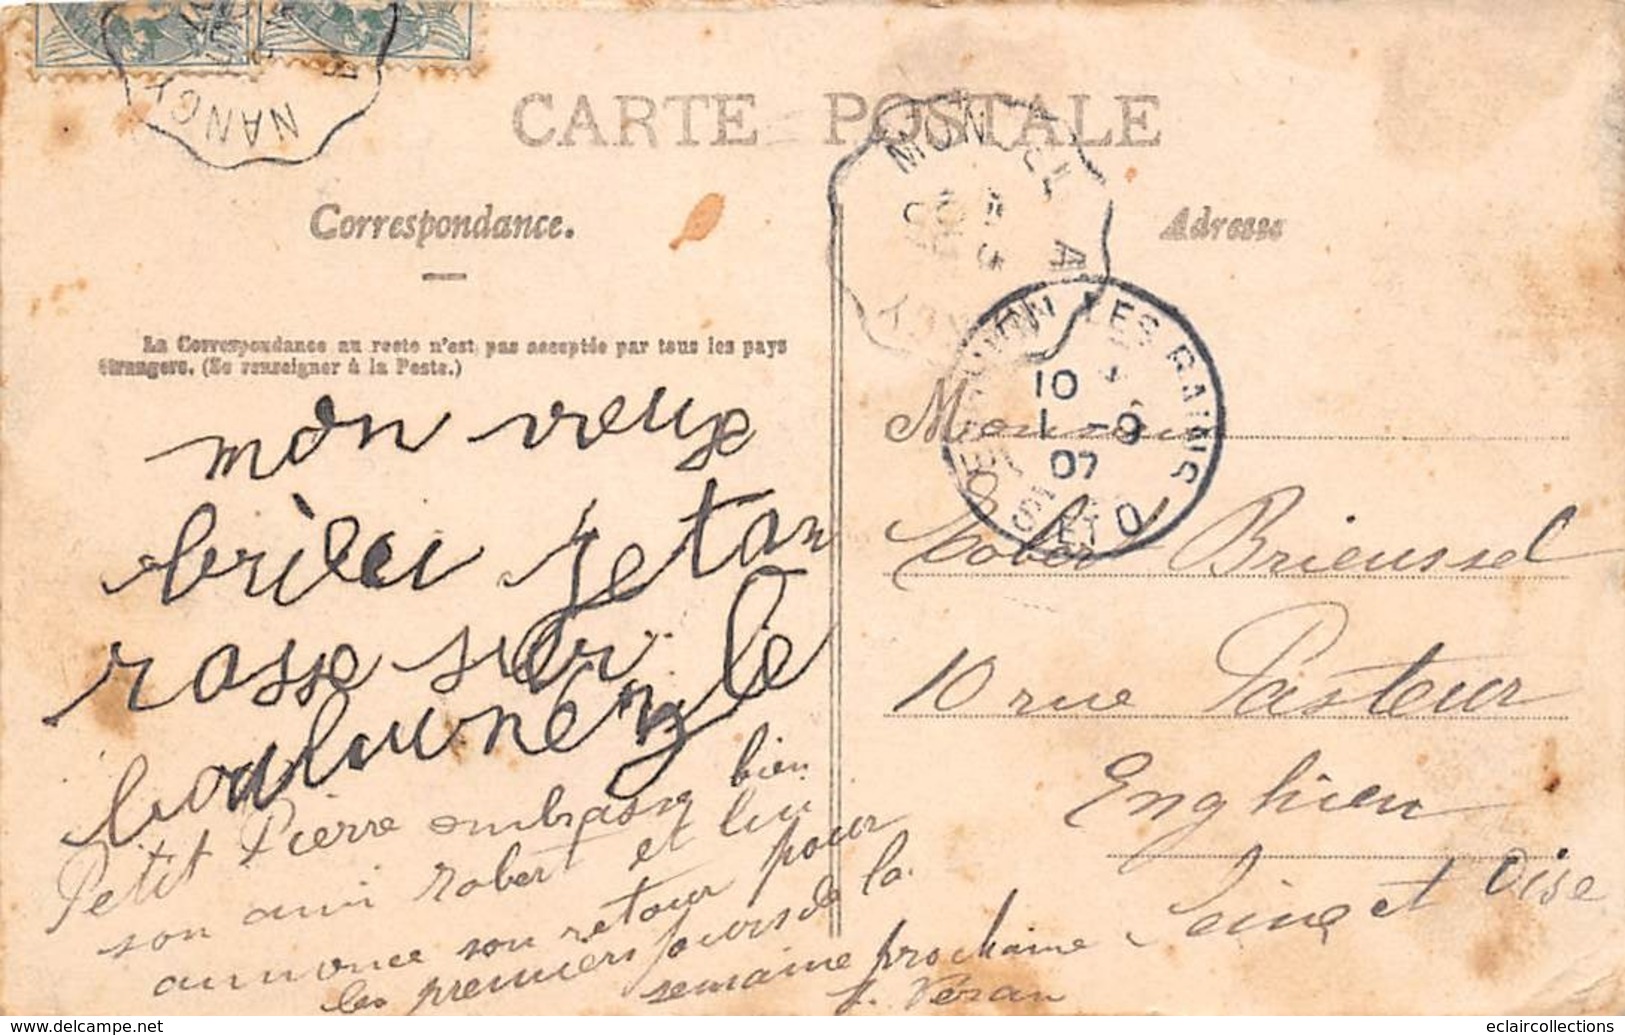 NANCY
CARTE POSTALE
Correspondance.
Adresse
MON
A
La Correspondance au recto n'est pas acceptée par tous les pays
étrangers. (Se renseigner à la Poste.)
LES BAINS
10
1 -9
07
ET O
mon vieux
je tan
rasse sur le
Petit Pierre embrasse bien
son ami Robert et lui
annonce son retour pour
les premiers jours de la
semaine prochaine
P. Véran
Monsieur
Robert Brieussel
10 rue Pasteur
Enghien
Seine et Oise
www.delcampe.net
eclaircollections